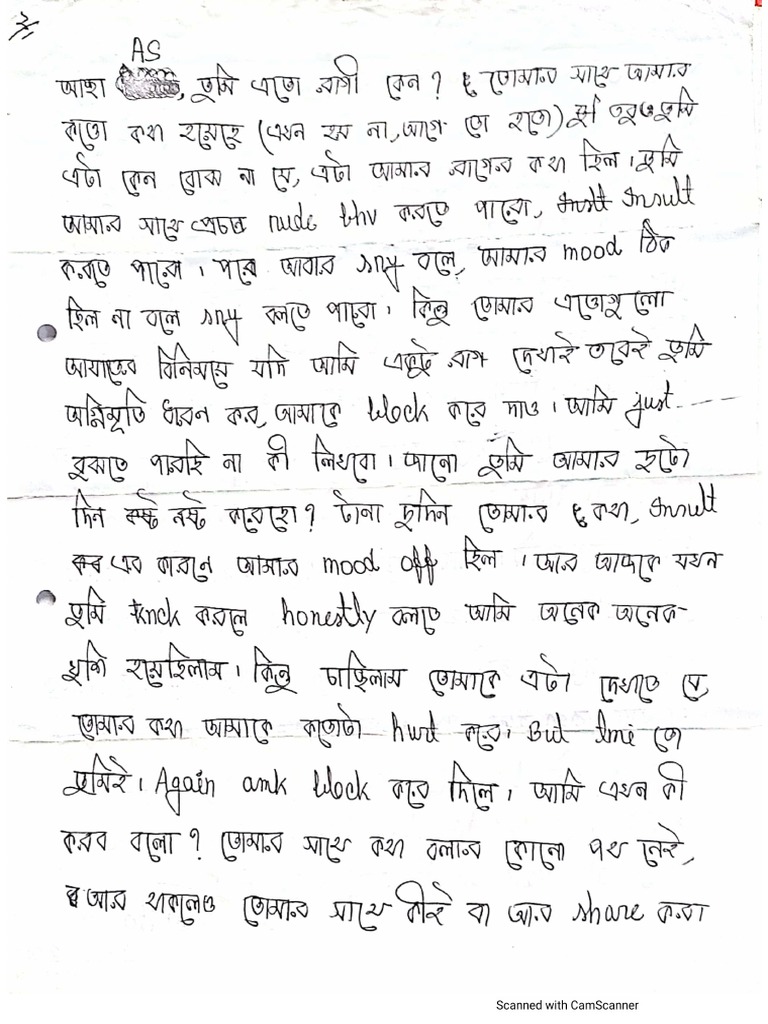 ২/১
AS
আচ্ছা , তুমি এতো রাগী কেন? তোমার সাথে আমার
কতো কথা হয়েছে (এখন হয় না, আগে তো হতো) তবুও তুমি
এটা কেন বোঝ না যে, এটা আমার রাগের কথা ছিল। তুমি
আমার সাথে প্রচন্ড rude bhv করতে পারো, Insult
করতে পারো। পরে আবার sry বলে, আমার mood ঠিক
ছিল না বলে sry বলতে পারো। কিন্তু তোমার এতোগুলো
আঘাতের বিনিময়ে যদি আমি একটু রাগ দেখাই তবেই তুমি
অগ্নিমূর্তি ধারন কর, আমাকে block করে দাও। আমি just
বুঝতে পারছি না কী লিখবো। জানো তুমি আমার দুটো
দিন নষ্ট করেছো? টানা দুদিন তোমার কথা, Insult
এর কারনে আমার mood off ছিল। আর আজকে যখন
তুমি knck করলে honestly বলতে আমি অনেক অনেক
খুশি হয়েছিলাম। কিন্তু চাচ্ছিলাম তোমাকে এটা দেখাতে যে,
তোমার কথা আমাকে কতোটা hurt করে। But তো
তুমিই। Again amk block করে দিলে। আমি এখন কী
করব বলো? তোমার সাথে কথা বলার কোনো পথ নেই,
আর থাকলেও তোমার সাথে কীই বা আর share করা
Scanned with CamScanner